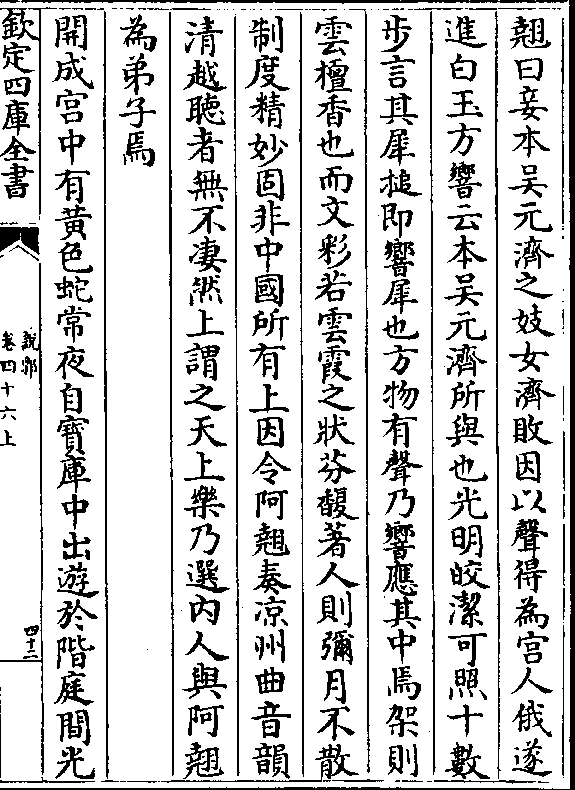 翹曰妾本吴元濟之妓女濟敗因以聲得為宫人俄遂
進白玉方響云本吴元濟所與也光明皎潔可照十數
步言其犀槌即響犀也方物有聲乃響應其中焉架則
雲檀香也而文彩若雲霞之狀芬馥著人則彌月不散
制度精妙固非中國所有上因令阿翹奏凉州曲音韻
清越聽者無不凄然上謂之天上樂乃選内人與阿翹
為弟子焉
開成宫中有黄色蛇常夜自寶庫中出遊於階庭間光
欽定四庫全書
説郛
卷四十六上
四十二